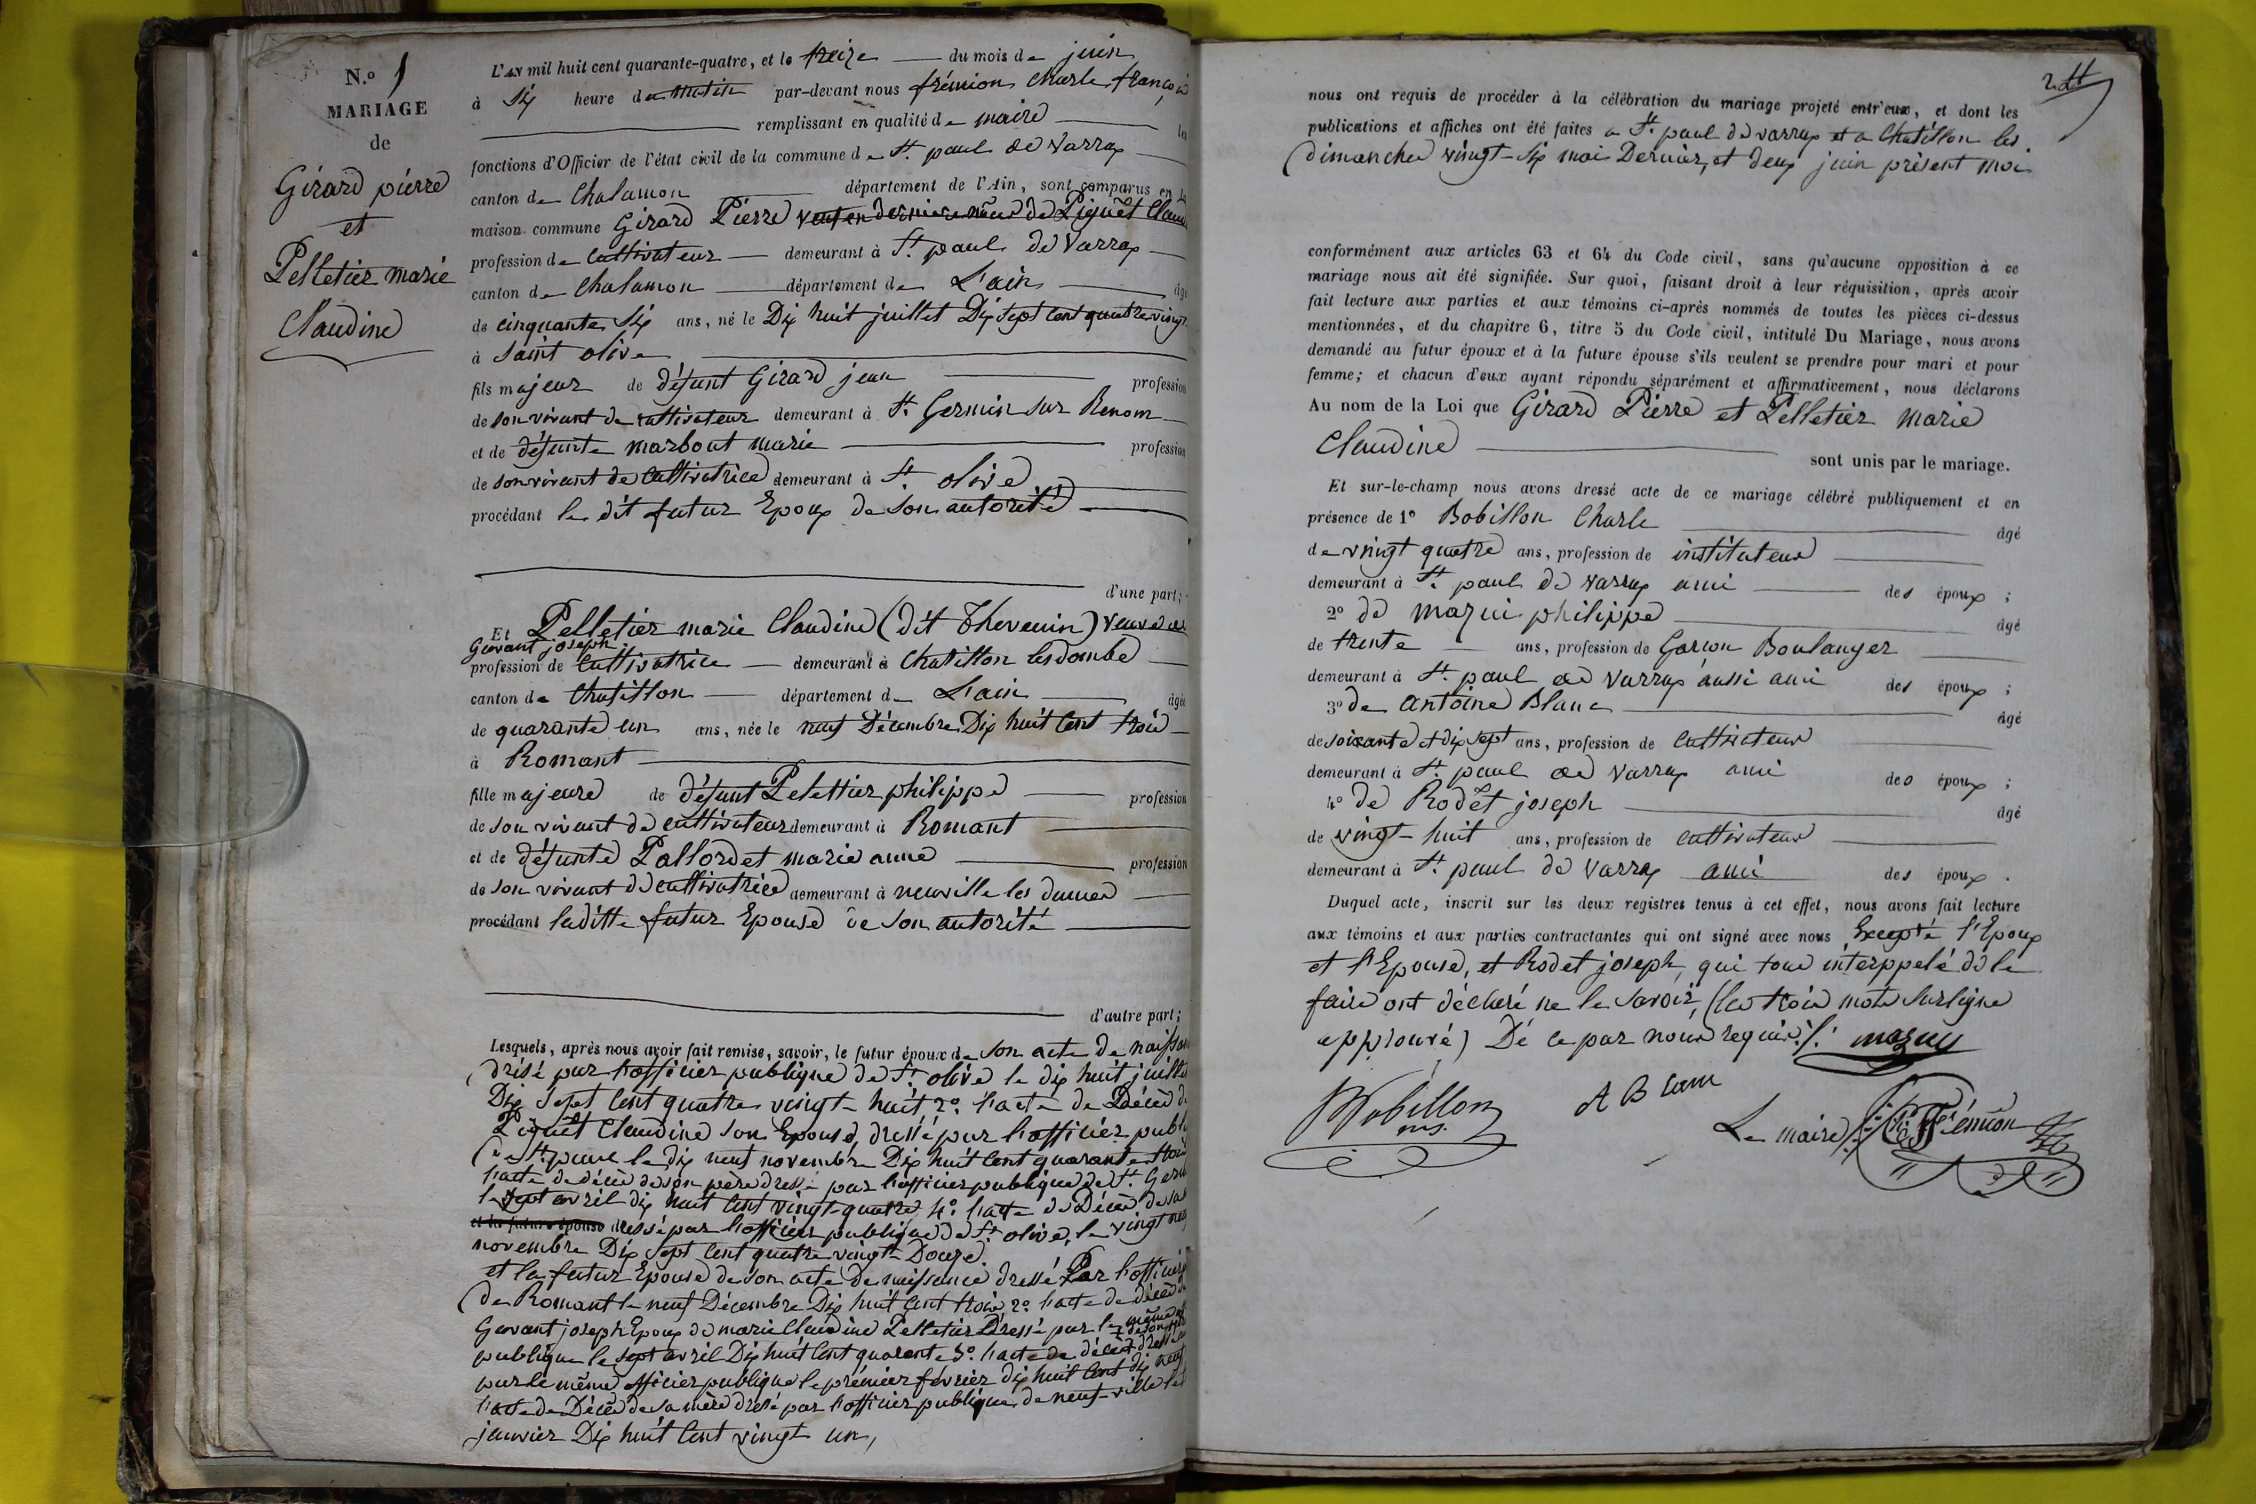 N.o 1
MARIAGE
de
Girard pierre
et
Pelletier marie
Claudine
L'AN mil huit cent quarante-quatre, et le treize du mois de juin
à six heure du matin par-devant nous frémion Charle françois
remplissant en qualité de maire les
fonctions d'Officier de l'état civil de la commune de St. paul de varax
canton de Chalamon département de l'Ain, sont comparus en la
maison commune Girard Pierre veuf en dernière nôce de Piguet Claud
profession de Cultivateur demeurant à St. paul de varax
canton de Chalamon département de L'ain âgé
de cinquante six ans, né le Dix huit juillet Dix sept cent quatre vingt
à saint olive
fils majeur de défunt Girard jean profession
de son vivant de cultivateur demeurant à St. Germin sur Renom
et de défunte marbout marie profession
de son vivant de Cultivatrice demeurant à St. olive
procédant le dit futur Epoux de son autorité
d'une part;
Et Pelletier marie Claudine (dit Thevenin) veuve de
Gavant joseph
profession de Cultivatrice demeurant à Chatillon les dombe
canton de Chatillon département de L'ain âgée
de quarante un ans, née le neuf Décembre Dix huit Cent trois
à Romant
fille majeure de défunt Pelettier philippe profession
de son vivant de cultivateur demeurant à Romant
et de défunte Pallordet marie anne profession
de son vivant de cultivatrice demeurant à neuville les dames
procédant laditte futur Epouse de son autorité
d'autre part;
Lesquels, après nous avoir fait remise, savoir, le futur époux de son acte de naissan
drésé par l'officier publique de St. olive le dix huit juillet
Dix sept Cent quatre vingt-huit 2o. l'acte de Décès de
Piguet Claudine son Epouse, dressé par l'officier publi
de St. paul le dix neuf novembre Dix huit Cent quarante trois
l'acte de décès de son père dressé par l'officier publique de St. Germ
le sept avril dix huit Cent vingt-quatre 4o. l'acte de Décès de sa
et la future épouse dressé par l'officier publique de St. olive, le vingt neuf
novembre Dix sept Cent quatre vingt Douze.
et la futur Epouse de son acte de naissance dressé Par l'officier
de Romant le neuf Décembre Dix huit Cent trois 2o. l'acte de décès de
Gavant joseph Epoux de marie Claudine Pelletier Dressé par le même
publique le sept avril Dix huit Cent quarante 3o. l'acte de décès de son père dressé
par le même officier publique le prémier février dix huit Cent dix neuf
l'acte de Décès de sa mère drésé par l'officier publique de neuf-ville les
janvier Dix huit Cent vingt un,
nous ont requis de procéder à la célébration du mariage projeté entr'eux, et dont les
publications et affiches ont été faites a St. paul de varax et a Chatillon les
dimanche vingt-six mai Dernier, et deux juin présent moi
conformément aux articles 63 et 64 du Code civil, sans qu'aucune opposition à ce
mariage nous ait été signifiée. Sur quoi, faisant droit à leur réquisition, après avoir
fait lecture aux parties et aux témoins ci-après nommés de toutes les pièces ci-dessus
mentionnées, et du chapitre 6, titre 5 du Code civil, intitulé Du Mariage, nous avons
demandé au futur époux et à la future épouse s'ils veulent se prendre pour mari et pour
femme; et chacun d'eux ayant répondu séparément et affirmativement, nous déclarons
Au nom de la Loi que Girard Pierre et Pelletier marie
Claudine
sont unis par le mariage.
Et sur-le-champ nous avons dressé acte de ce mariage célébré publiquement et en
présence de 1o Bobillon Charle âgé
de vingt quatre ans, profession de instituteur
demeurant à St. paul de varax ami des époux ;
2o de mazui philippe âgé
de trente ans, profession de Garçon Boulanger
demeurant à St. paul de varax aussi ami des époux ;
3o de antoine Blanc âgé
de soixante et dix sept ans, profession de Cultivateur
demeurant à St. paul de varax ami des époux ;
4o de Rodet joseph âgé
de vingt-huit ans, profession de cultivateur
demeurant à St. paul de varax ami des époux .
Duquel acte, inscrit sur les deux registres tenus à cet effet, nous avons fait lecture
aux témoins et aux parties contractantes qui ont signé avec nous Excepté l'Epoux
et l'Epouse, et Rodet joseph, qui tous interppelé de le
faire ont déclaré ne le savoir, (les trois mots surligne
approuvé) Dé ce par nous requis ./. mazuy
Bobillon A Blanc
Le maire Frémion